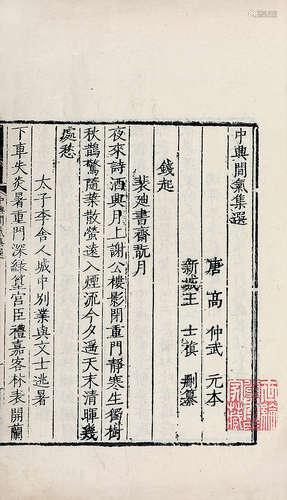 中興間氣集選
唐 高 仲武 元本
新城王 士禛 刪纂
錢起
裴迪書齋翫月
夜來詩酒興月上謝公樓影閉重門靜寒生獨樹
秋鵲驚隨葉散螢遠入煙流今夕遥天末清暉幾
處愁
太子李舍人城中別業與文士逃暑
下車失炎暑重門深綠篁宮臣禮嘉客林表開蘭